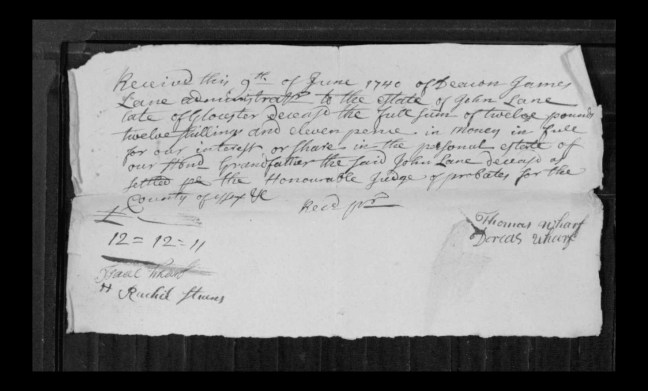 Received this 9th of June 1740 of Deacon James
Lane administratr to the estate of John Lane
late of Glocester deceasd the full sum of twelve pounds
twelve shillings and eleven pence in money in full
for our interest or share in the personal estate of
our Hond Grandfather the said John Lane deceasd as
setled pr the Honourable Judge of probates for the
County of Essex &c
Recd pr
Thomas Wharf
Dorcas Wharf
£
12 = 12 = 11
Wharf
Rachel